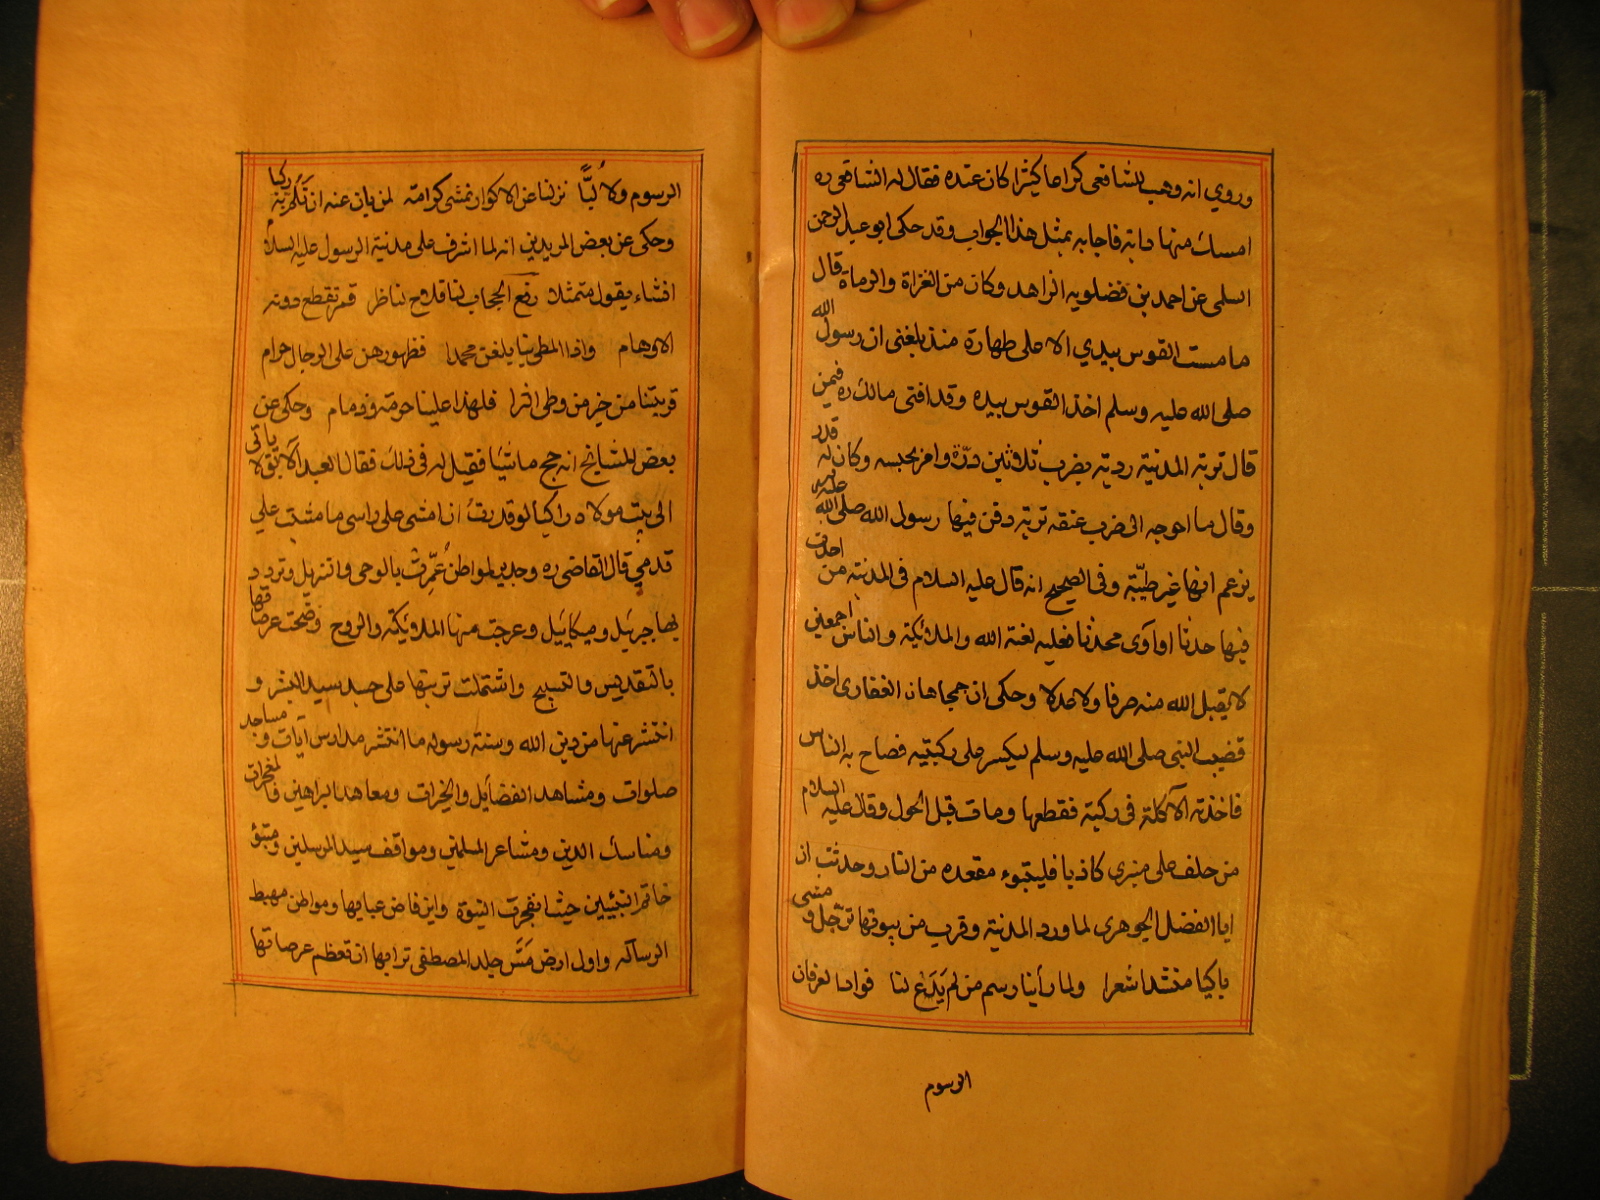 وروي انه وهب للشافعي كراعا كثيرا كان عنده فقال له الشافعي ره
امسك منها دابة فاجابه بمثل هذا الجواب وقد حكى ابو عبد الرحمن
السلمي عن احمد بن فضلويه الزاهد وكان من الغزاة والرماة قال
ما مست القوس بيدي الا على طهارة منذ بلغني ان رسول الله
صلى الله عليه وسلم اخذ القوس بيده وقد افتى مالك ره فيمن
قال تربة المدنية ردية يضرب ثلاثين درّة وامر بحبسه وكان له قدر
وقال ما احوجه الى ضرب عنقه تربة دفن فيها رسول الله صلى الله عليه
يزعم انها غير طيّبة وفي الصحيح انه قال عليه السلام في المدنية من احدث
فيها حدثا او آوى محدثا فعليه لعنة الله والملائكة والناس اجمعين
لا يقبل الله منه صرفا ولا عدلا وحكى ان جهجاهان الغفارى اخذ
قضيب النبى صلى الله عليه وسلم ليكسر على ركبتيه فصاح به الناس
فاخذته الآكلة فى ركبته فقطعها ومات قبل الحول وقال عليه السلام
من حلف على منبرى كاذبا فليتبوء مقعده من النار وحدثت ان
ابا الفضل الجوهرى لما ورد المدنية وقرب من بيوتها ترجّل ومشى
باكيا منشدا شعرا ولما راينا رسم من لم يَدَع لنا فوادا لعرفان
الرسوم
الرسوم ولا لُبًّا نزلنا عن الاكوار نمشى كرامة لمن بان عنه ان نُلِمّ به ركبا
وحكى عن بعض المريدين انه لما اشرف على مدنية الرسول عليه السلام
انشاء يقول متمثلا رفع الحجاب لنا فلاح لناظر قمر تقطع دونه
الاوهام واذا المطي بنا يلغن محمدا فظهورهن على الرجال حرام
قربتنا من خير من وطى الثرا فلهذا علينا حرمة وذمام وحكى عن
بعض المشايخ انه حج ماشيا فقيل له فى ذلك فقال العبد الآبق لا ياتى
الى بيت مولاه راكبا لو قدرت ان امشى على راسى ما مشيت على
قدمي قال القاضى ره وجدير لمواطن عُمِّرت بالوحى والتنزيل وتردد
بها جبريل وميكاييل وعرجت منها الملائكة والروح وضجت عرصاتها
بالتقديس والتسبيح واشتملت تربتها على جسد سيد البشر و
انتشر عنها من دين الله وسنة رسوله ما انتشر مدارس آيات ومساجد
صلوات ومشاهد الفضايل والخيرات ومعاهد البراهين والمعجزات
ومناسك الدين ومشاعر المسلمين ومواقف سيد المرسلين ومتبوّء
خاتم النبيين حيث انفجرت النبوة واين فاض عبابها ومواطن مهبط
الرسالة واول ارض مَسّ جلد المصطفى ترابها ان تعظم عرصاتها